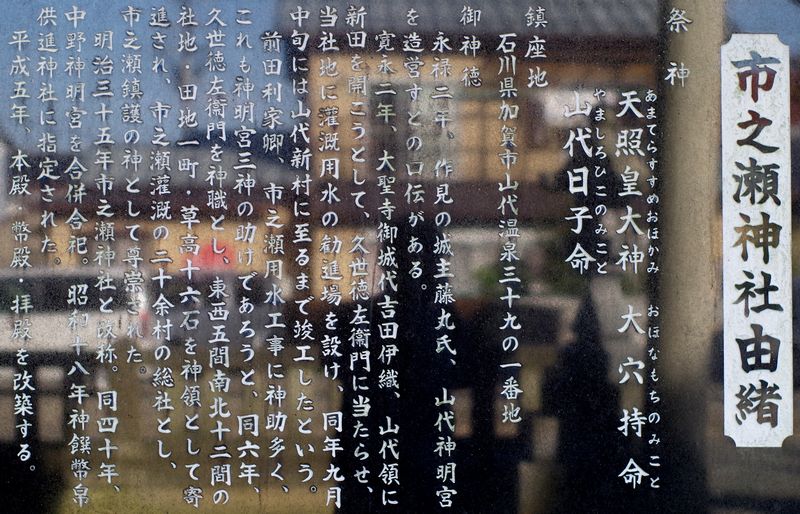 市之瀬神社由緒
祭神
あまてらすすめおほかみ　おほなもちのみこと
天照皇大神　大穴持命
やましろひこのみこと
山代日子命
鎮座地
石川県加賀市山代温泉三十九の一番地
御神徳
永禄二年、作見の城主藤丸氏、山代神明宮
を造営すとの口伝がある。
寛永二年、大聖寺御城代吉田伊織、山代領に
新田を開こうとして、久世徳左衛門に当たらせ、
当社地に灌漑用水の勧進場を設け、同年九月
中旬には山代新村に至るまで竣工したという。
前田利家卿、市之瀬用水工事に神助多く、
これも神明宮三神の助けであろうと、同六年、
久世徳左衛門を神職とし、東西五間南北十二間の
社地・田地一町・草高十六石を神領として寄
進され、市之瀬灌漑の二十余村の総社とし、
市之瀬鎮護の神として尊崇された。
明治三十五年市之瀬神社と改称。同四十年、
中野神明宮を合併合祀。昭和十八年神饌幣帛
供進神社に指定された。
平成五年、本殿・幣殿・拝殿を改築する。